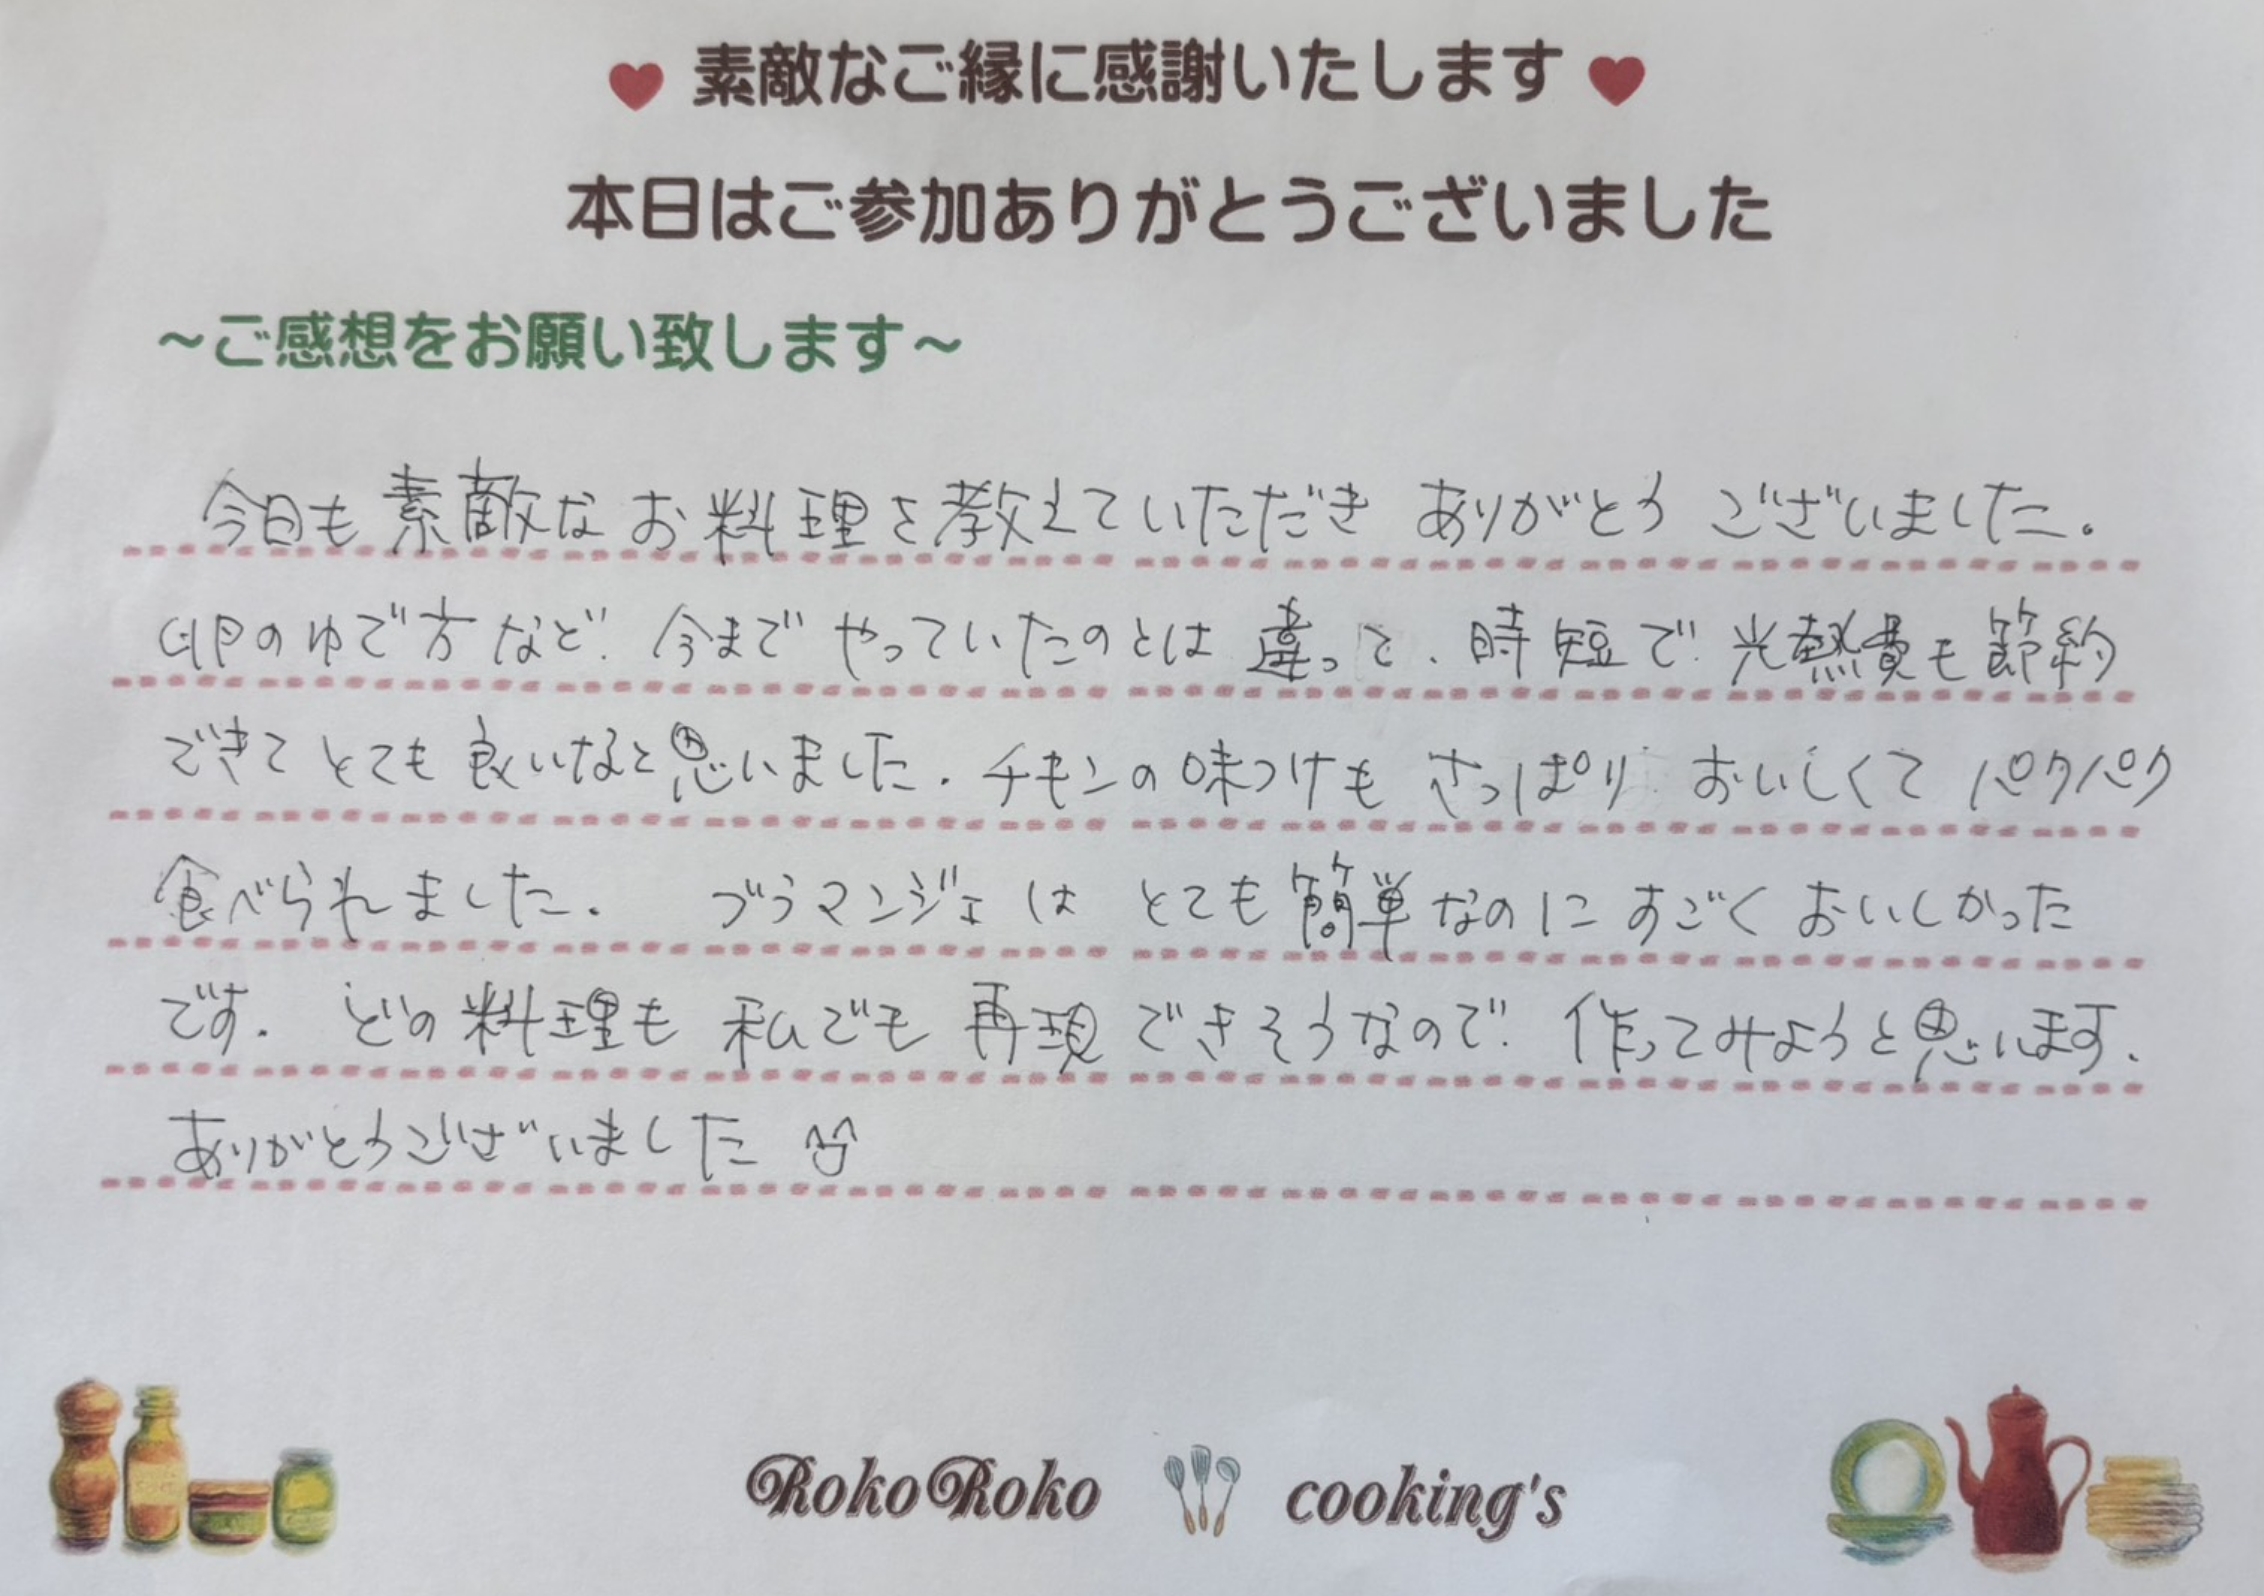 素敵なご縁に感謝いたします
本日はご参加ありがとうございました
～ご感想をお願い致します～
今日も素敵なお料理を教えていただきありがとうございました。
卵のゆで方など、今までやっていたのとは違って、時短で光熱費も節約
できてとても良いなと思いました。チキンの味つけもさっぱりおいしくてパクパク
食べられました。ブラマンジェはとても簡単なのにすごくおいしかった
です。どの料理も私でも再現できそうなので、作ってみようと思います。
ありがとうございました
RokoRoko cooking's